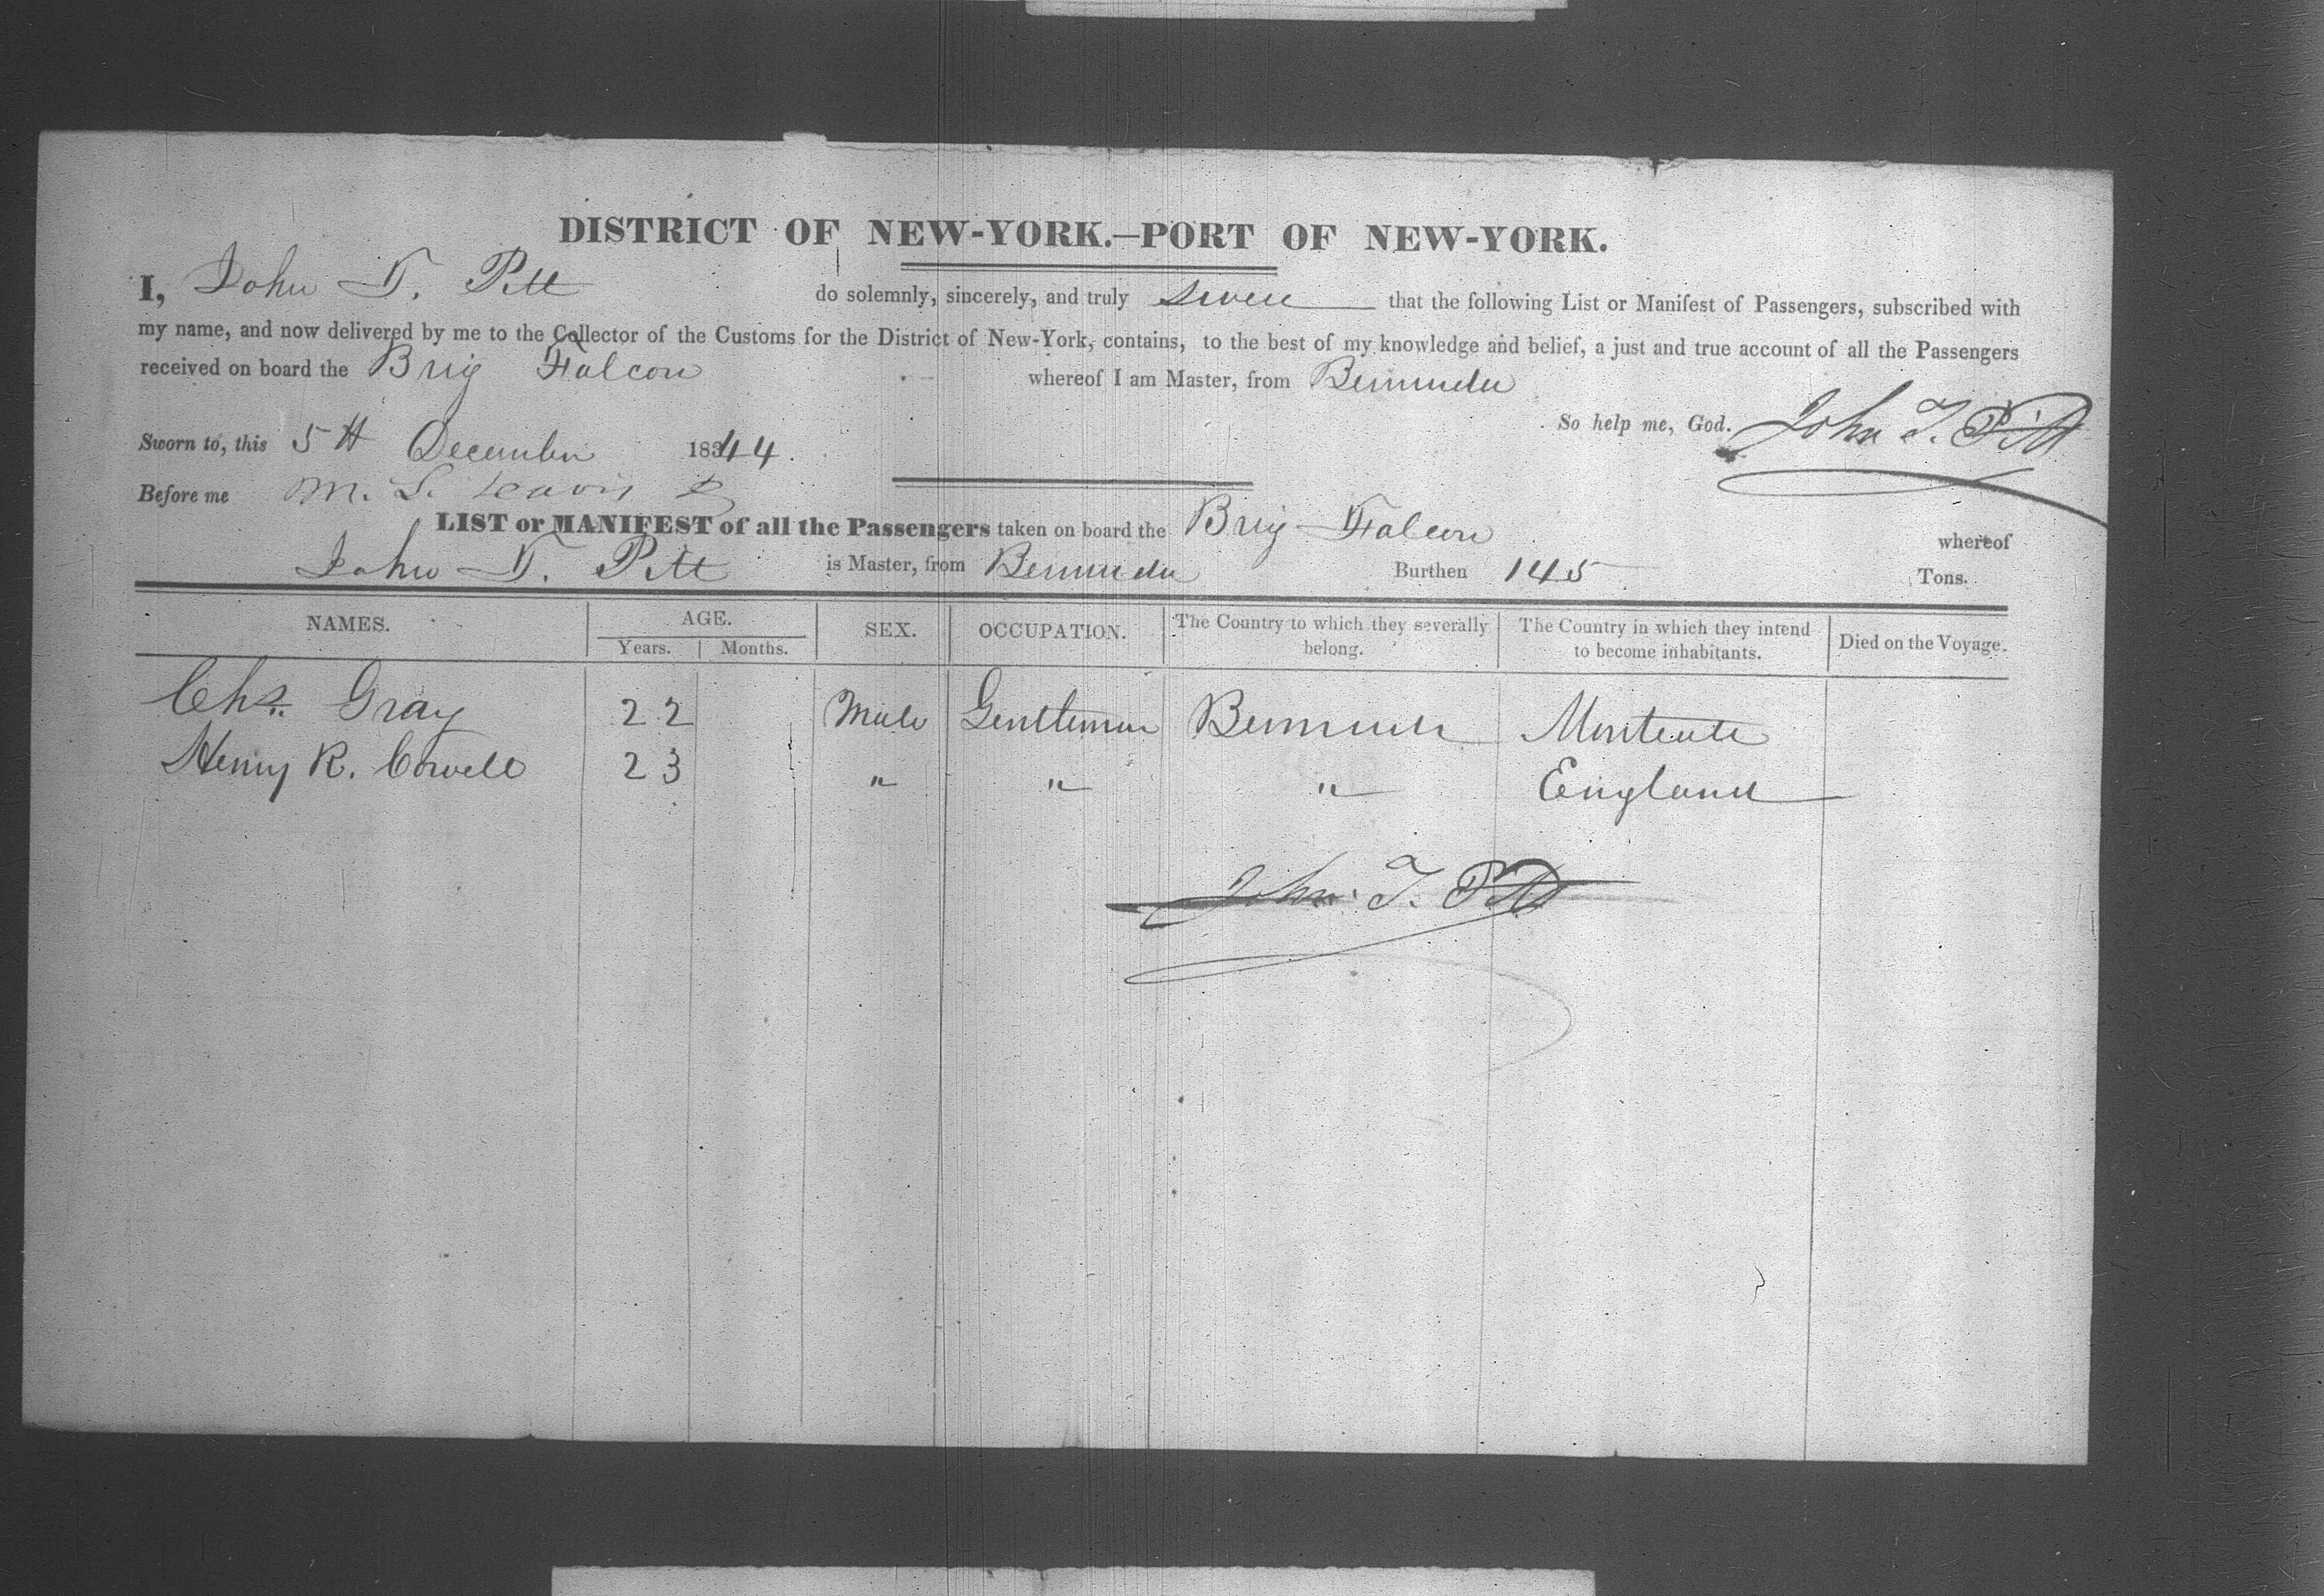 DISTRICT OF NEW-YORK.—PORT OF NEW-YORK.
I, John T. Pitt do solemnly, sincerely, and truly swear that the following List or Manifest of Passengers, subscribed with
my name, and now delivered by me to the Collector of the Customs for the District of New-York, contains, to the best of my knowledge and belief, a just and true account of all the Passengers
received on board the Brig Falcon whereof I am Master, from Bermuda
So help me, God. John T. Pitt
Sworn to, this 5th December 1844.
Before me M. L. Davis
LIST or MANIFEST of all the Passengers taken on board the Brig Falcon whereof
John T. Pitt is Master, from Bermuda Burthen 145 Tons.
NAMES. AGE. Years. Months. SEX. OCCUPATION. The Country to which they severally belong. The Country in which they intend to become inhabitants. Died on the Voyage.
Chs. Gray 22 Male Gentleman Bermuda
Henry R. Cowell 23 " " " England
John T. Pitt